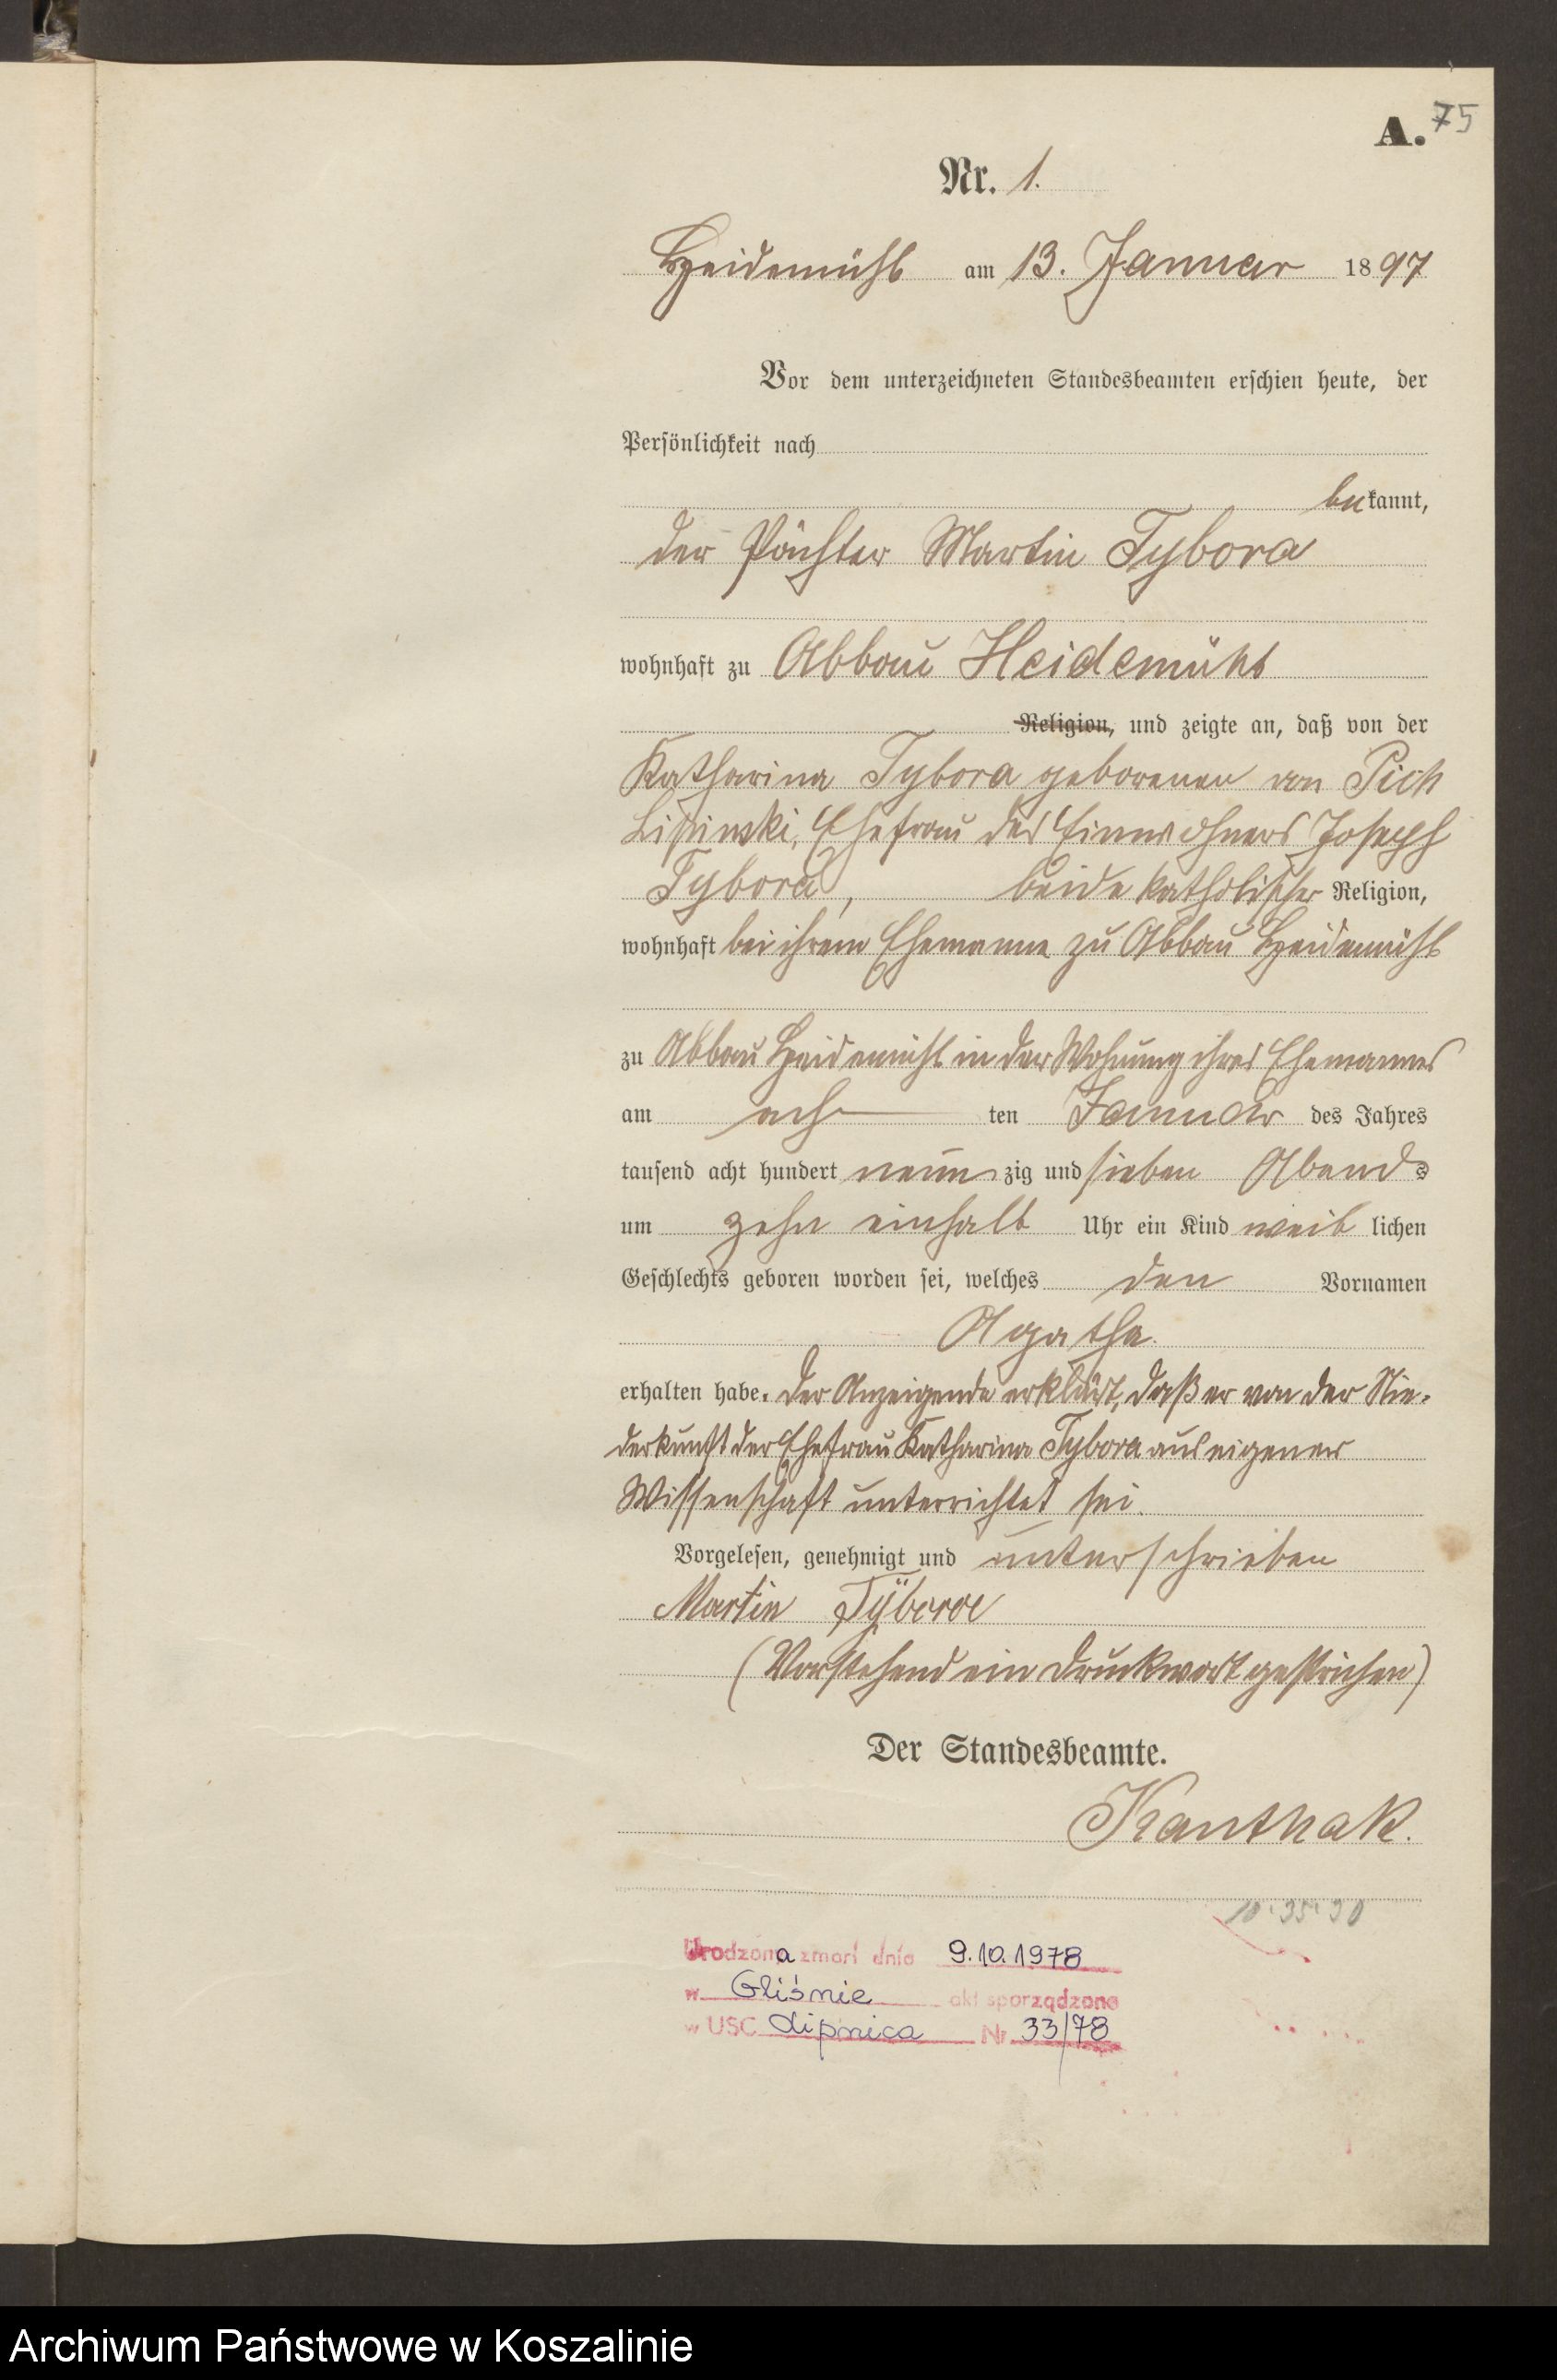 A. 75
Nr. 1.
Heidemühl am 13. Januar 1897
Vor dem unterzeichneten Standesbeamten erschien heute, der
Persönlichkeit nach
bekannt,
der Pächter Martin Tybora
wohnhaft zu Abbau Heidemühl
Religion, und zeigte an, daß von der
Katharina Tybora geborenen von Pich
Lipinski, Ehefrau des Einwohners Joseph
Tybora, beide katholischer Religion,
wohnhaft bei ihrem Ehemanne zu Abbau Heidemühl
zu Abbau Heidemühl in der Wohnung ihres Ehemannes
am ach ten Januar des Jahres
tausend acht hundert neun zig und sieben Abends
um zehn einhalb Uhr ein Kind weib lichen
Geschlechts geboren worden sei, welches den Vornamen
Agatha.
erhalten habe. Der Anzeigende erklärt, daß er von der Nie-
derkunft der Ehefrau Katharina Tybora aus eigener
Wissenschaft unterrichtet sei.
Vorgelesen, genehmigt und unterschrieben
Martin Tÿbora
(Vorstehend ein Druckwort gestrichen)
Der Standesbeamte.
Kanthak.
Urodzona zmarł dnia 9.10.1978
w Gliśnie akt sporządzono
w USC Lipnica Nr 33/78
Archiwum Państwowe w Koszalinie